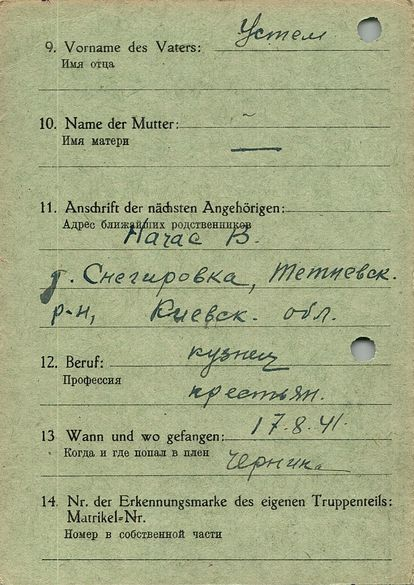 9. Vorname des Vaters: Устем
Имя отца
10. Name der Mutter: —
Имя матери
11. Anschrift der nächsten Angehörigen:
Адрес ближайших родственников
Начас В.
д. Снегировка, Тетиевск.
р-н, Киевск. обл.
12. Beruf: кузнец
Профессия
крестьян.
13 Wann und wo gefangen: 17.8.41.
Когда и где попал в плен
14. Nr. der Erkennungsmarke des eigenen Truppenteils:
Matrikel-Nr.
Номер в собственной части